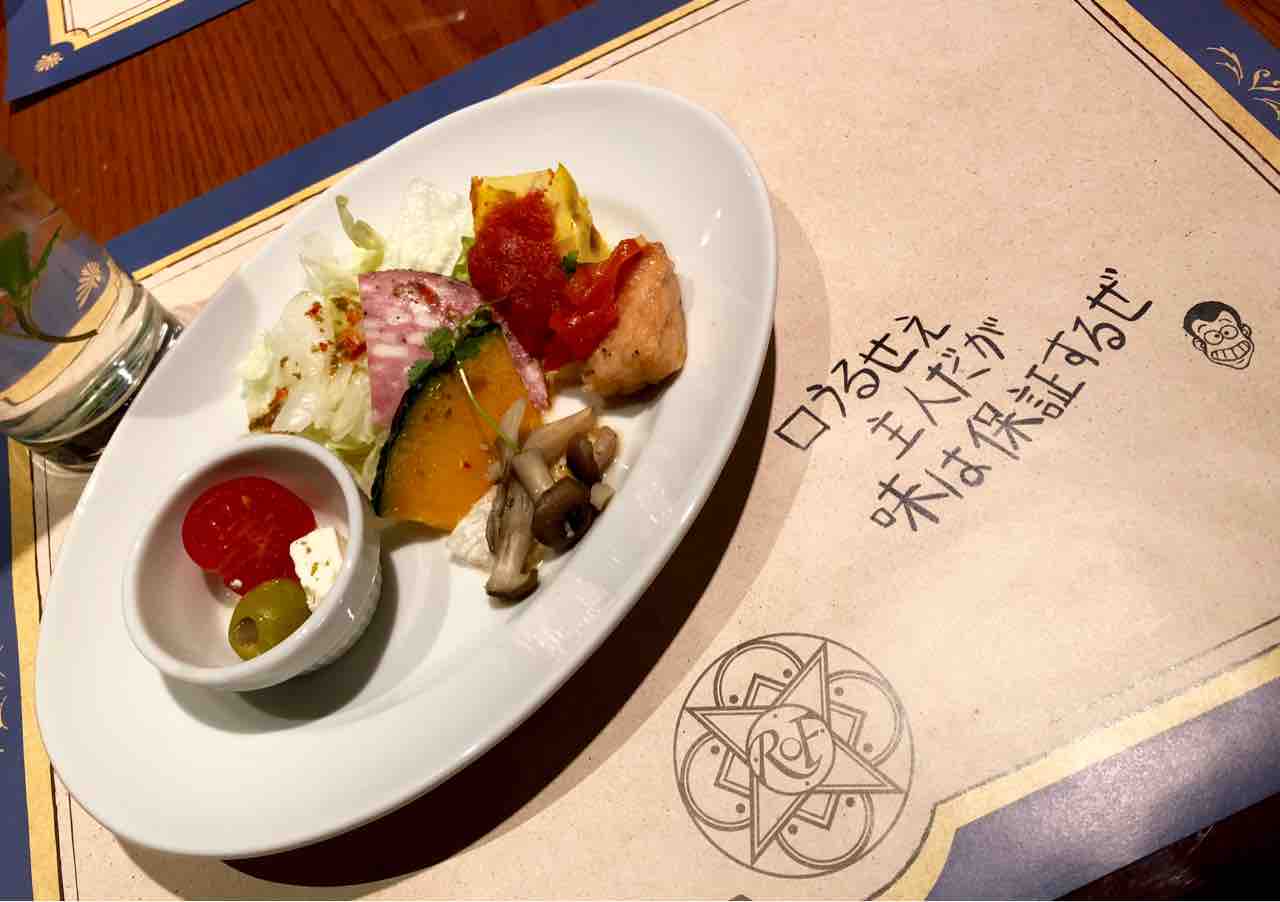 口うるせぇ
主人だが
味は保証するぜ
RoF